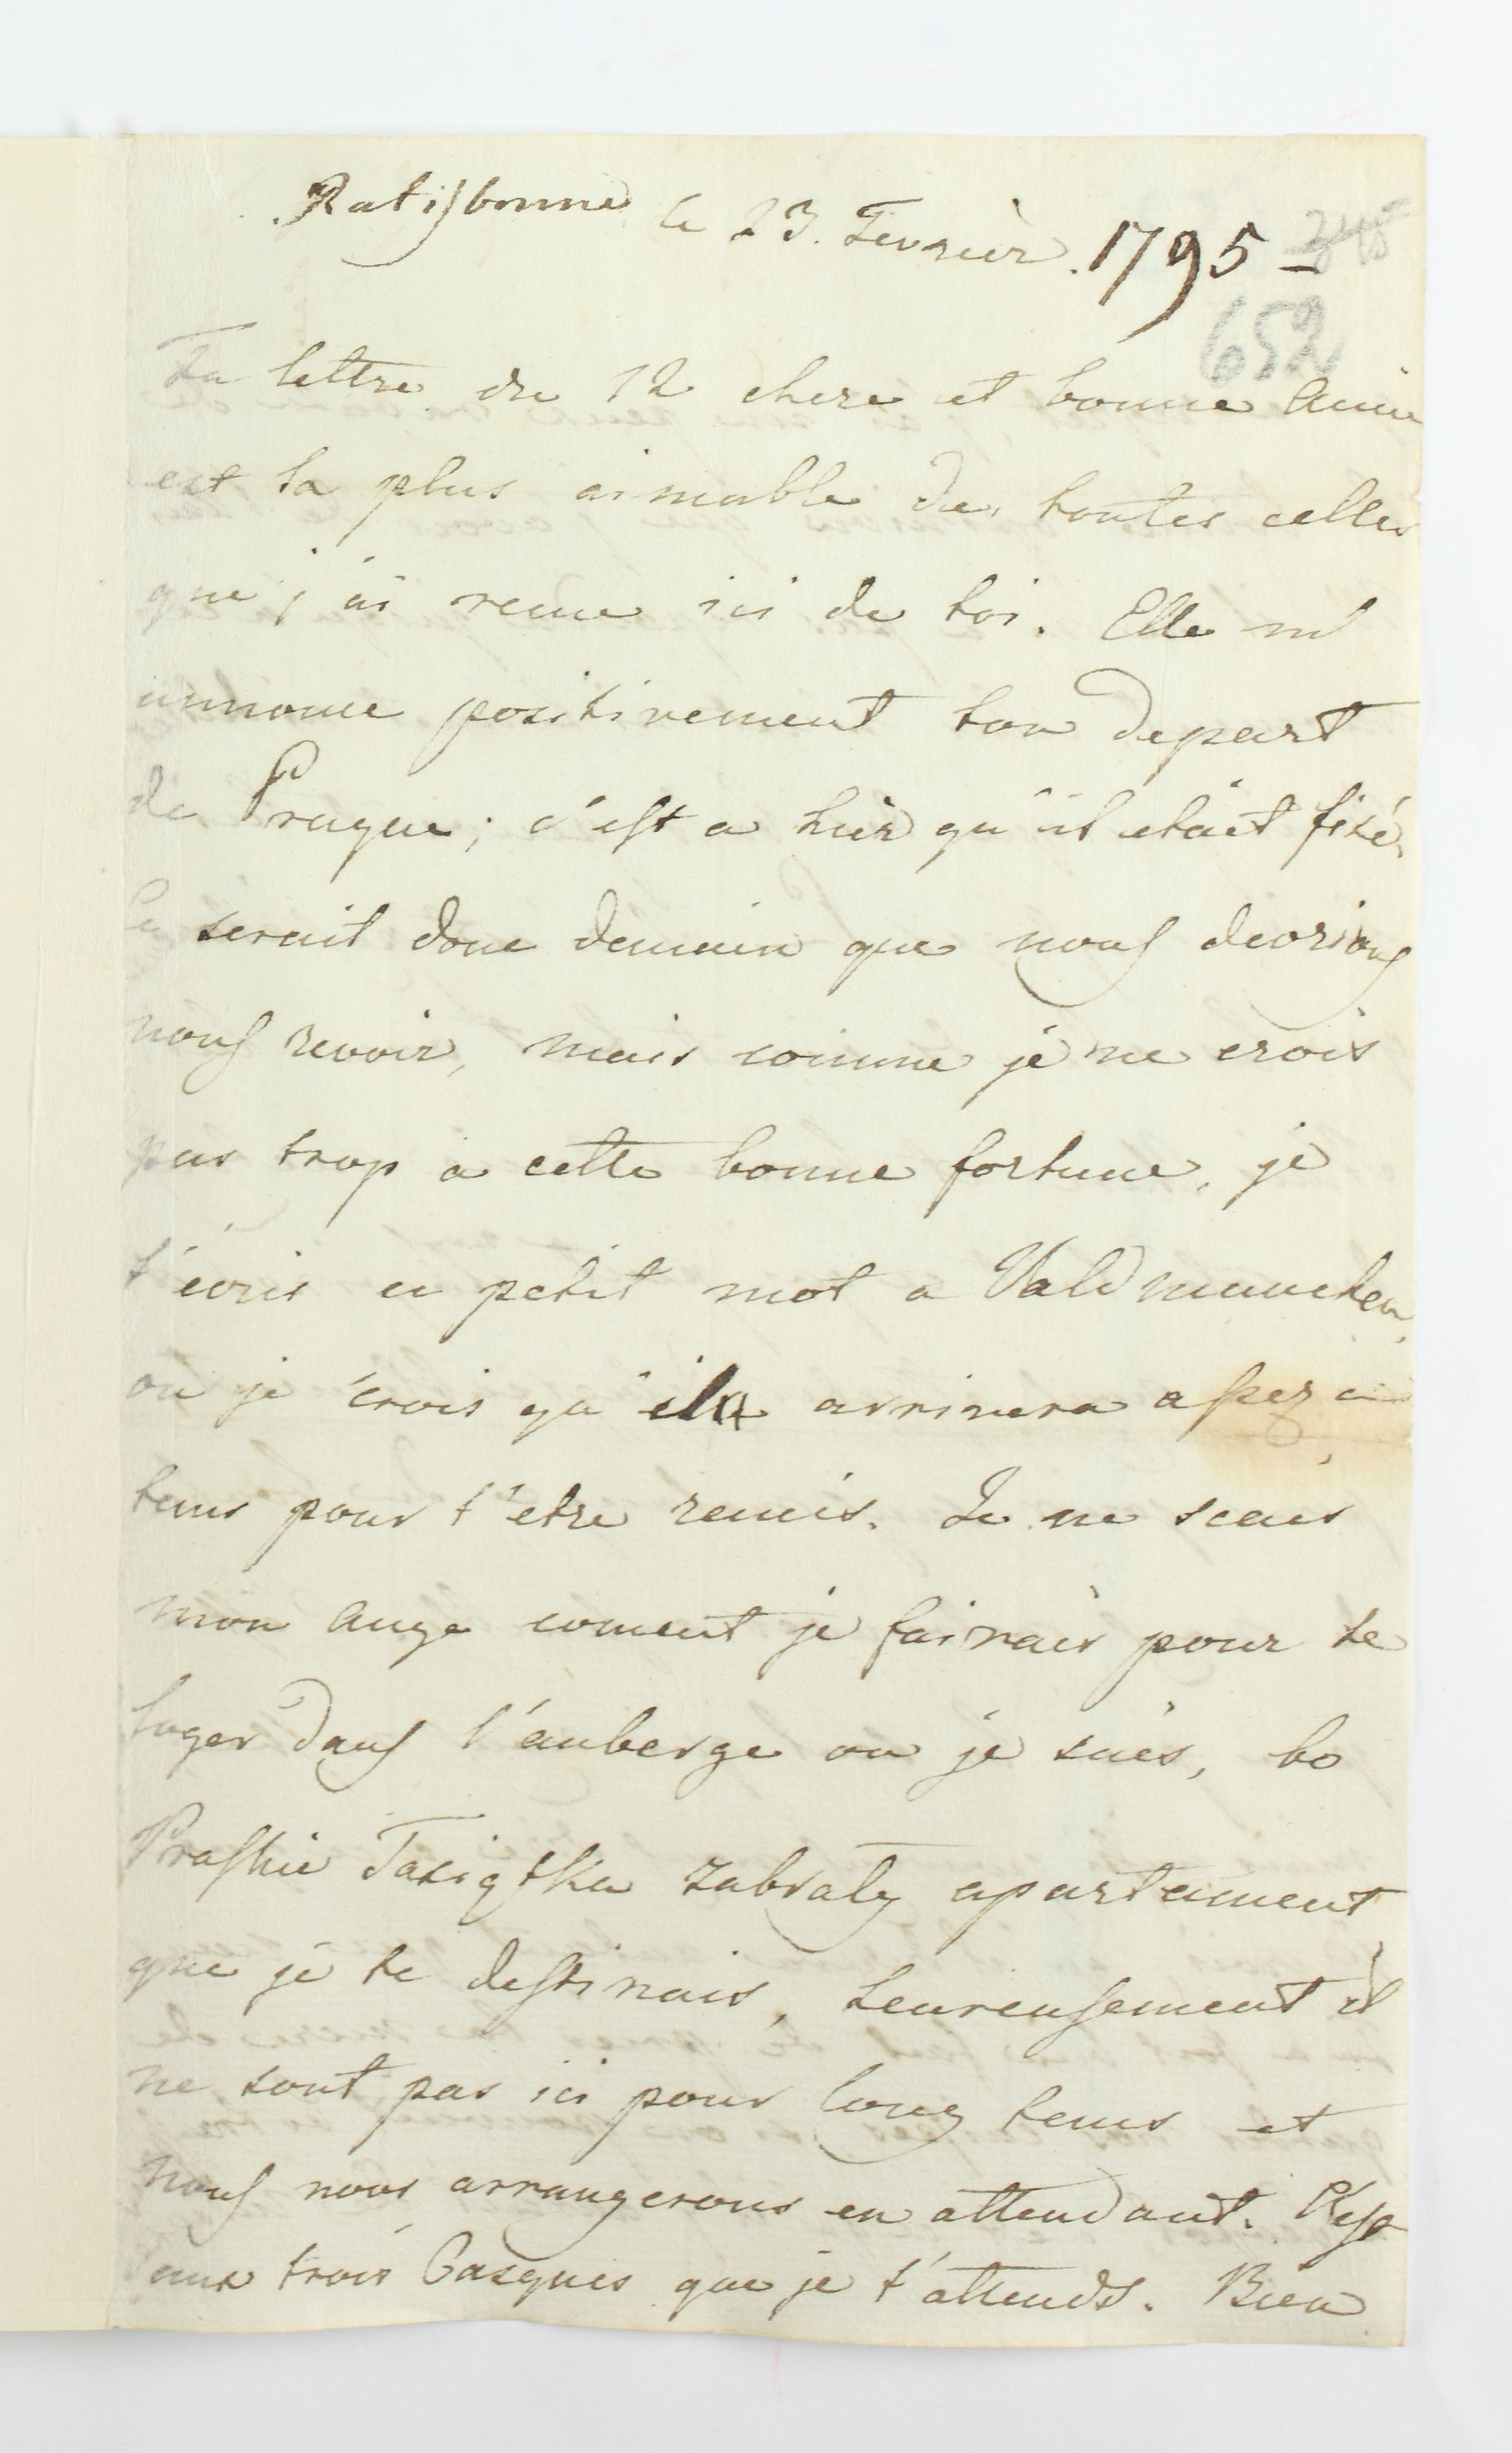 Ratisbonne le 23. Fevrier. 1795
652
Ta lettre du 12 chere et bonne Amie
est la plus aimable de toutes celles
que j'ai recue ici de toi. Elle m'
annonce positivement ton depart
de Prague; c'est a hier qu'il etait fixé,
Ce serait donc demain que nous devrions
nous revoir, mais comme je ne crois
pas trop a cette bonne fortune, je
t'écris ce petit mot a Valdmunchen,
ou je crois qu'il arrivera assez a
tems pour t'etre remis. Je ne scais
mon Ange coment je fairais pour te
loger dans l'auberge ou je suis, bo
zabraly apartament
que je te destinais, heureusement il
ne sont pas ici pour long tems et
nous nous arrangerons en attendant. C'est
aux trois Casques que je t'attends. Bien